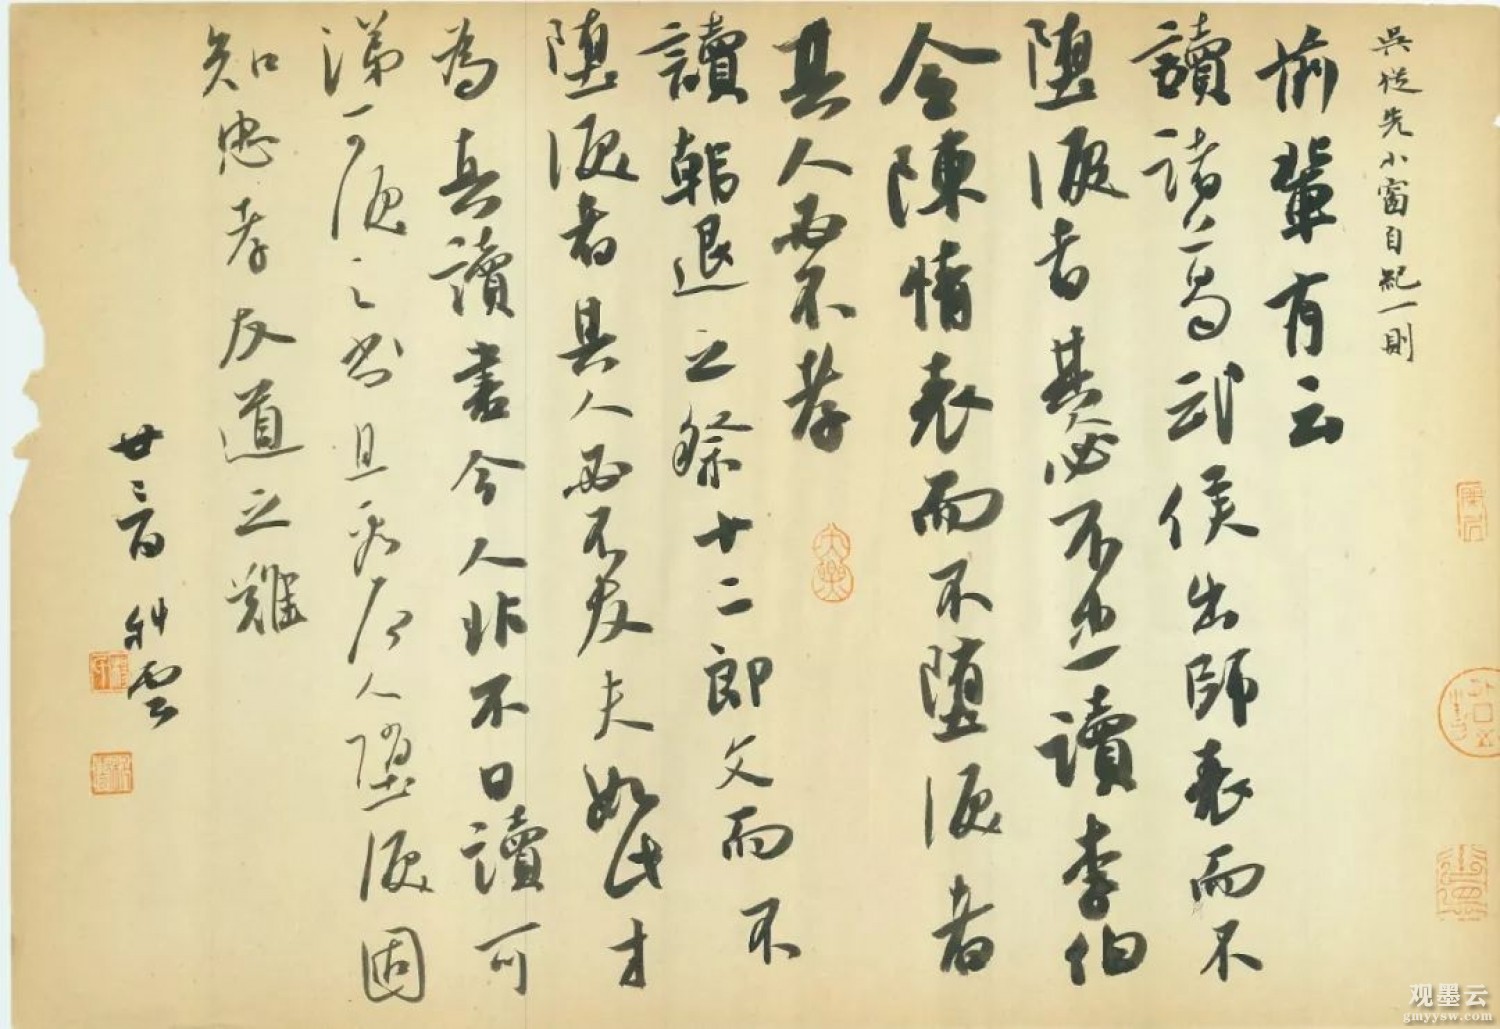 吳從先小窗自紀一則
前輩有云
讀諸葛武侯出師表而不
墮淚者其人必不忠讀李伯
令陳情表而不墮淚者
其人必不孝
讀韓退之祭十二郎文而不
墮淚者其人必不友夫如此才
為真讀書今人非不日讀可
涕可淚之書且為古人墮淚固
知忠孝友道之難
廿二 雲
观墨云
gmyysw.com